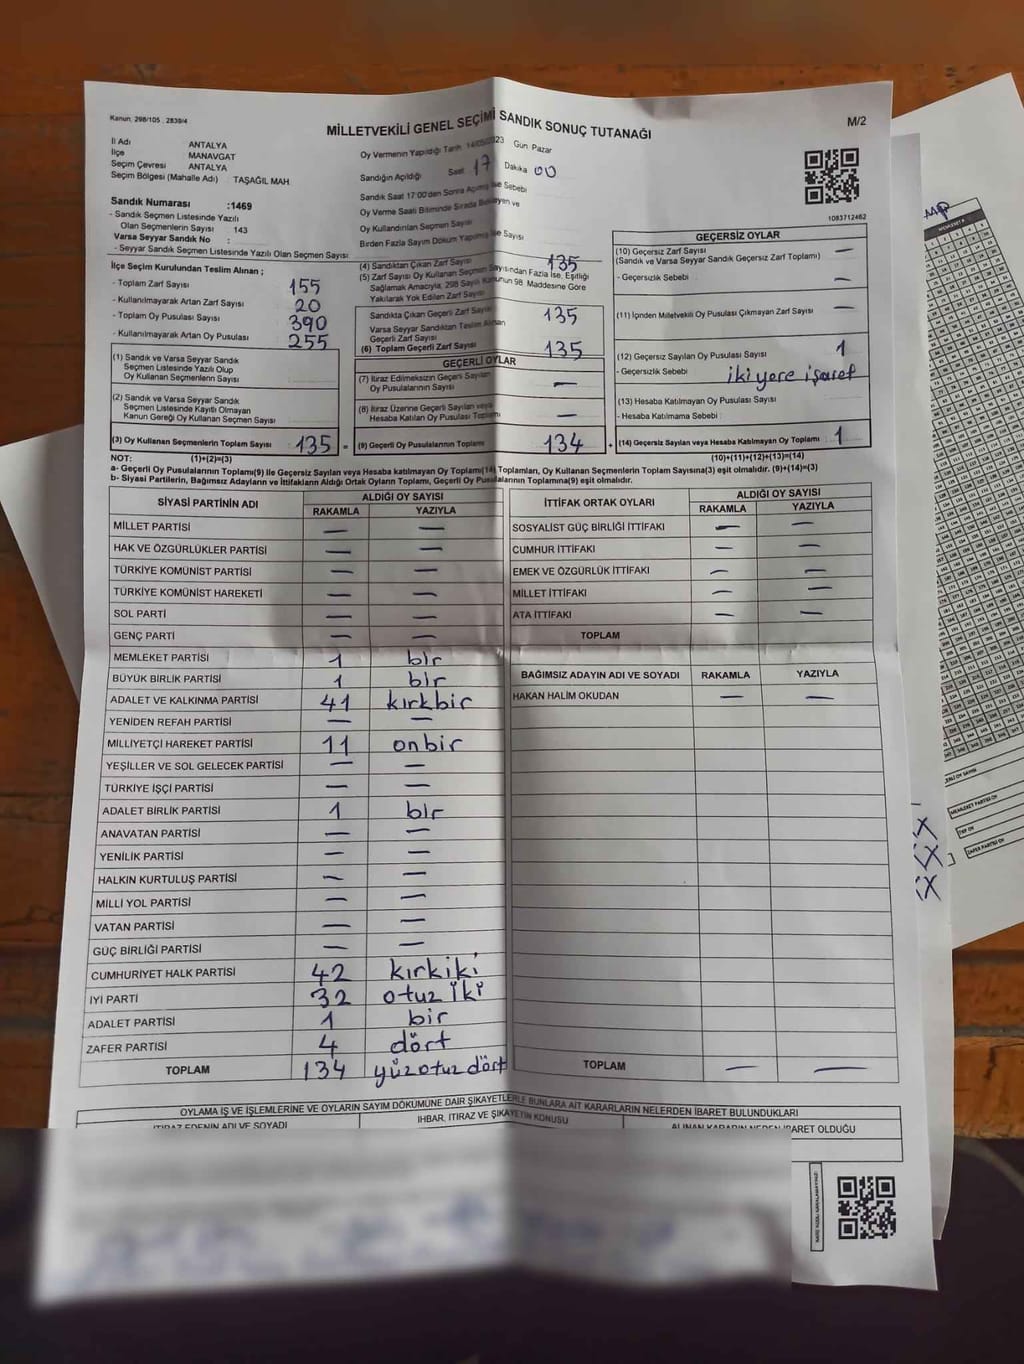 Kanun, 298/105 , 2839/4
MİLLETVEKİLİ GENEL SEÇİMİ SANDIK SONUÇ TUTANAĞI
M/2
İl Adı ANTALYA
İlçe MANAVGAT
Seçim Çevresi ANTALYA
Seçim Bölgesi (Mahalle Adı) TAŞAĞIL MAH
Oy Vermenin Yapıldığı Tarih 14/05/2023 Gün Pazar
Sandığın Açıldığı Saat 17 Dakika 00
Sandık Saat 17:00'den Sonra Açılmış İse Sebebi
Oy Verme Saati Bitiminde Sırada Bekleyen ve
Oy Kullandırılan Seçmen Sayısı
Birden Fazla Sayım Döküm Yapılmış İse Sayısı
1083712462
Sandık Numarası :1469
- Sandık Seçmen Listesinde Yazılı
Olan Seçmenlerin Sayısı 143
Varsa Seyyar Sandık No :
- Seyyar Sandık Seçmen Listesinde Yazılı Olan Seçmen Sayısı
İlçe Seçim Kurulundan Teslim Alınan ;
- Toplam Zarf Sayısı 155
- Kullanılmayarak Artan Zarf Sayısı 20
- Toplam Oy Pusulası Sayısı 390
- Kullanılmayarak Artan Oy Pusulası 255
(1) Sandık ve Varsa Seyyar Sandık
Seçmen Listesinde Yazılı Olup
Oy Kullanan Seçmenlerin Sayısı
(2) Sandık ve Varsa Seyyar Sandık
Seçmen Listesinde Kayıtlı Olmayan
Kanun Gereği Oy Kullanan Seçmen Sayısı
(3) Oy Kullanan Seçmenlerin Toplam Sayısı 135 =
(4) Sandıktan Çıkan Zarf Sayısı 135
(5) Zarf Sayısı Oy Kullanan Seçmen Sayısından Fazla İse, Eşitliği
Sağlamak Amacıyla, 298 Sayılı Kanunun 98. Maddesine Göre
Yakılarak Yok Edilen Zarf Sayısı
Sandıkta Çıkan Geçerli Zarf Sayısı 135
Varsa Seyyar Sandıktan Teslim Alınan
Geçerli Zarf Sayısı
(6) Toplam Geçerli Zarf Sayısı 135
GEÇERLİ OYLAR
(7) İtiraz Edilmeksizin Geçerli Sayılan
Oy Pusulalarının Sayısı —
(8) İtiraz Üzerine Geçerli Sayılan veya
Hesaba Katılan Oy Pusulası Toplamı —
(9) Geçerli Oy Pusulalarının Toplamı 134 +
GEÇERSİZ OYLAR
(10) Geçersiz Zarf Sayısı —
(Sandık ve Varsa Seyyar Sandık Geçersiz Zarf Toplamı)
- Geçersizlik Sebebi —
(11) İçinden Milletvekili Oy Pusulası Çıkmayan Zarf Sayısı —
(12) Geçersiz Sayılan Oy Pusulası Sayısı 1
- Geçersizlik Sebebi iki yere işaret
(13) Hesaba Katılmayan Oy Pusulası Sayısı
- Hesaba Katılmama Sebebi
(14) Geçersiz Sayılan veya Hesaba Katılmayan Oy Toplamı 1
NOT: (1)+(2)=(3) (10)+(11)+(12)+(13)=(14)
a- Geçerli Oy Pusulalarının Toplamı(9) ile Geçersiz Sayılan veya Hesaba katılmayan Oy Toplamı(14) Toplamları, Oy Kullanan Seçmenlerin Toplam Sayısına(3) eşit olmalıdır. (9)+(14)=(3)
b- Siyasi Partilerin, Bağımsız Adayların ve İttifakların Aldığı Ortak Oyların Toplamı, Geçerli Oy Pusulalarının Toplamına(9) eşit olmalıdır.
SİYASİ PARTİNİN ADI ALDIĞI OY SAYISI
RAKAMLA YAZIYLA
MİLLET PARTİSİ — —
HAK VE ÖZGÜRLÜKLER PARTİSİ — —
TÜRKİYE KOMÜNİST PARTİSİ — —
TÜRKİYE KOMÜNİST HAREKETİ — —
SOL PARTİ — —
GENÇ PARTİ — —
MEMLEKET PARTİSİ 1 bir
BÜYÜK BİRLİK PARTİSİ 1 bir
ADALET VE KALKINMA PARTİSİ 41 kırkbir
YENİDEN REFAH PARTİSİ — —
MİLLİYETÇİ HAREKET PARTİSİ 11 onbir
YEŞİLLER VE SOL GELECEK PARTİSİ — —
TÜRKİYE İŞÇİ PARTİSİ — —
ADALET BİRLİK PARTİSİ 1 bir
ANAVATAN PARTİSİ — —
YENİLİK PARTİSİ — —
HALKIN KURTULUŞ PARTİSİ — —
MİLLİ YOL PARTİSİ — —
VATAN PARTİSİ — —
GÜÇ BİRLİĞİ PARTİSİ — —
CUMHURİYET HALK PARTİSİ 42 kırkiki
İYİ PARTİ 32 otuz iki
ADALET PARTİSİ 1 bir
ZAFER PARTİSİ 4 dört
TOPLAM 134 yüzotuz dört
İTTİFAK ORTAK OYLARI ALDIĞI OY SAYISI
RAKAMLA YAZIYLA
SOSYALİST GÜÇ BİRLİĞİ İTTİFAKI — —
CUMHUR İTTİFAKI — —
EMEK VE ÖZGÜRLÜK İTTİFAKI — —
MİLLET İTTİFAKI — —
ATA İTTİFAKI — —
TOPLAM
BAĞIMSIZ ADAYIN ADI VE SOYADI RAKAMLA YAZIYLA
HAKAN HALİM OKUDAN — —
TOPLAM — —
OYLAMA İŞ VE İŞLEMLERİNE VE OYLARIN SAYIM DÖKÜMÜNE DAİR ŞİKAYETLERLE BUNLARA AİT KARARLARIN NELERDEN İBARET BULUNDUKLARI
İTİRAZ EDENİN ADI VE SOYADI
İHBAR, İTİRAZ VE ŞİKAYETİN KONUSU
ALINAN KARARIN NEDEN İBARET OLDUĞU
MEMLEKET PARTİSİ OY
TİP OY
ZAFER PARTİSİ OY